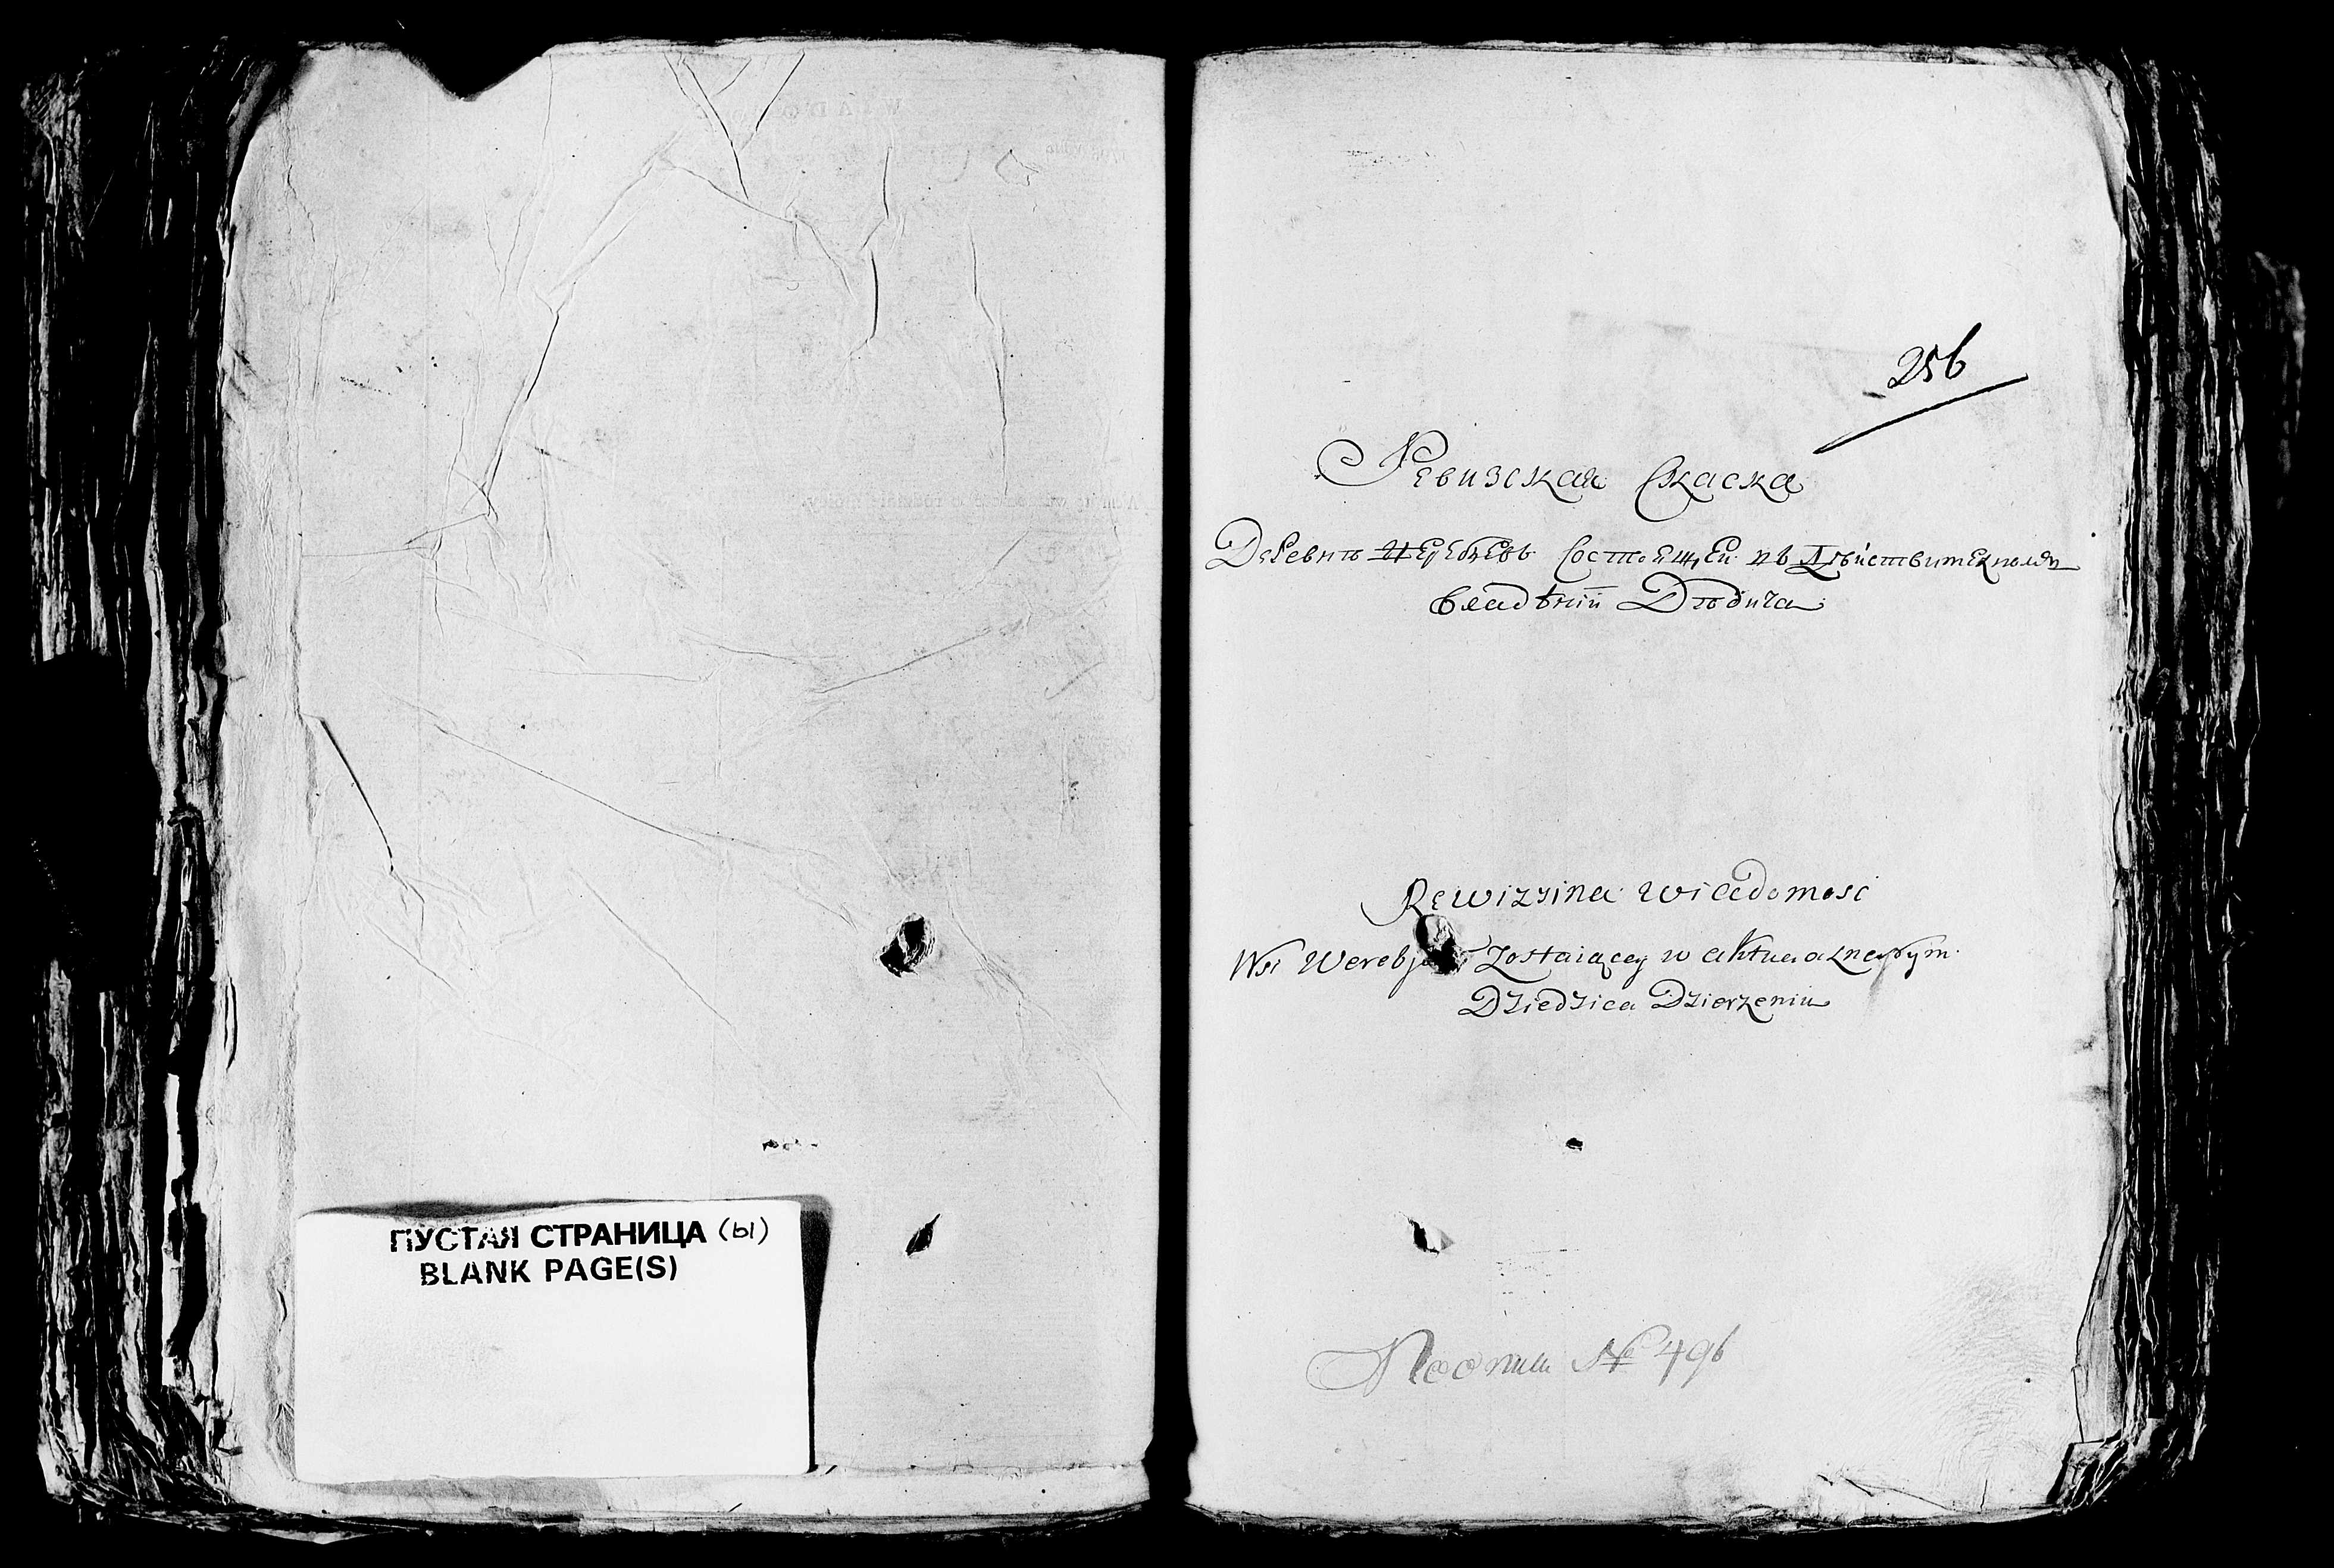 ПУСТАЯ СТРАНИЦА (ы)
BLANK PAGE(S)
256
Ревизская Скаска
Деревнѣ состоящей въ Дѣйствителномъ
владѣніи Дѣдича
Rewizyina wiadomosc
Wsi Zostaiącey w aktualneyszym
Dziedzica Dzierzeniu
№ 496